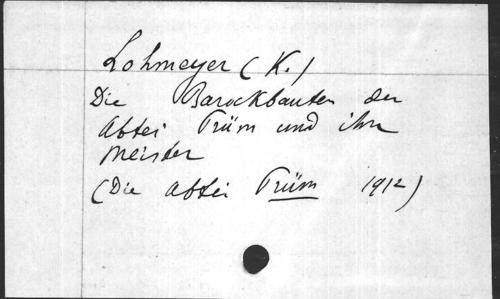 Lohmeyer (K.)
Die Barockbauten der
Abtei Prüm und ihre
Meister
(Die Abtei Prüm 1912)